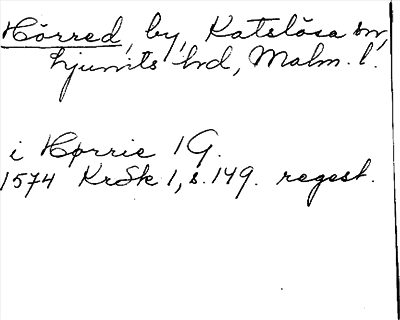 Hörred, by, Katslösa sn,
Ljunits hd, Malm. l.
i Hørrie 1 G.
1574 KrSk 1, s. 149. regest.